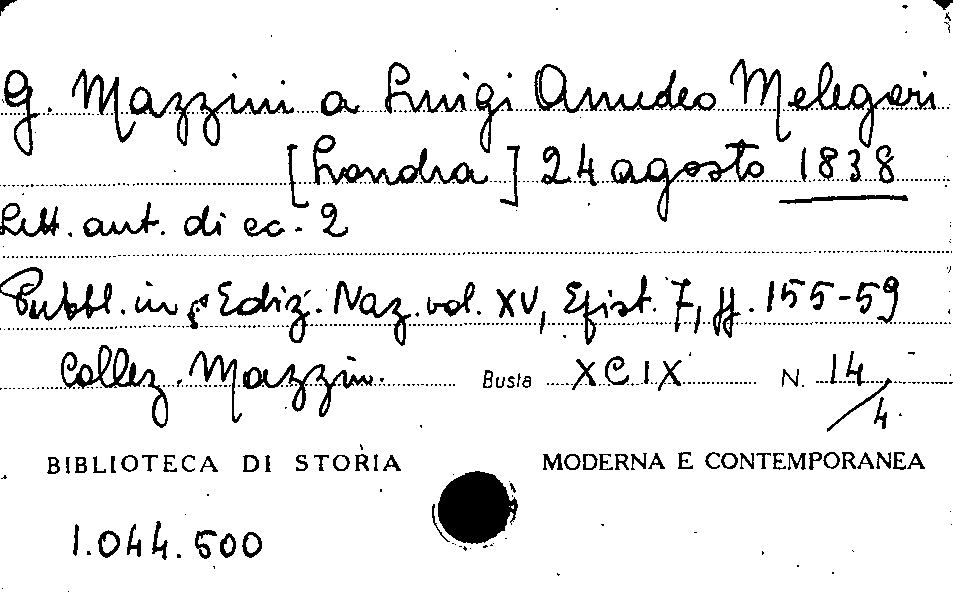 G. Mazzini a Luigi Amedeo Melegari
[Londra] 24 agosto 1838
Lett. aut. di cc. 2
Pubbl. in Ediz. Naz. vol. XV, Epist. 7, pp. 155-59
Collez. Mazzini. Busta XCIX N. 14/4.
BIBLIOTECA DI STORIA MODERNA E CONTEMPORANEA
1.044.500